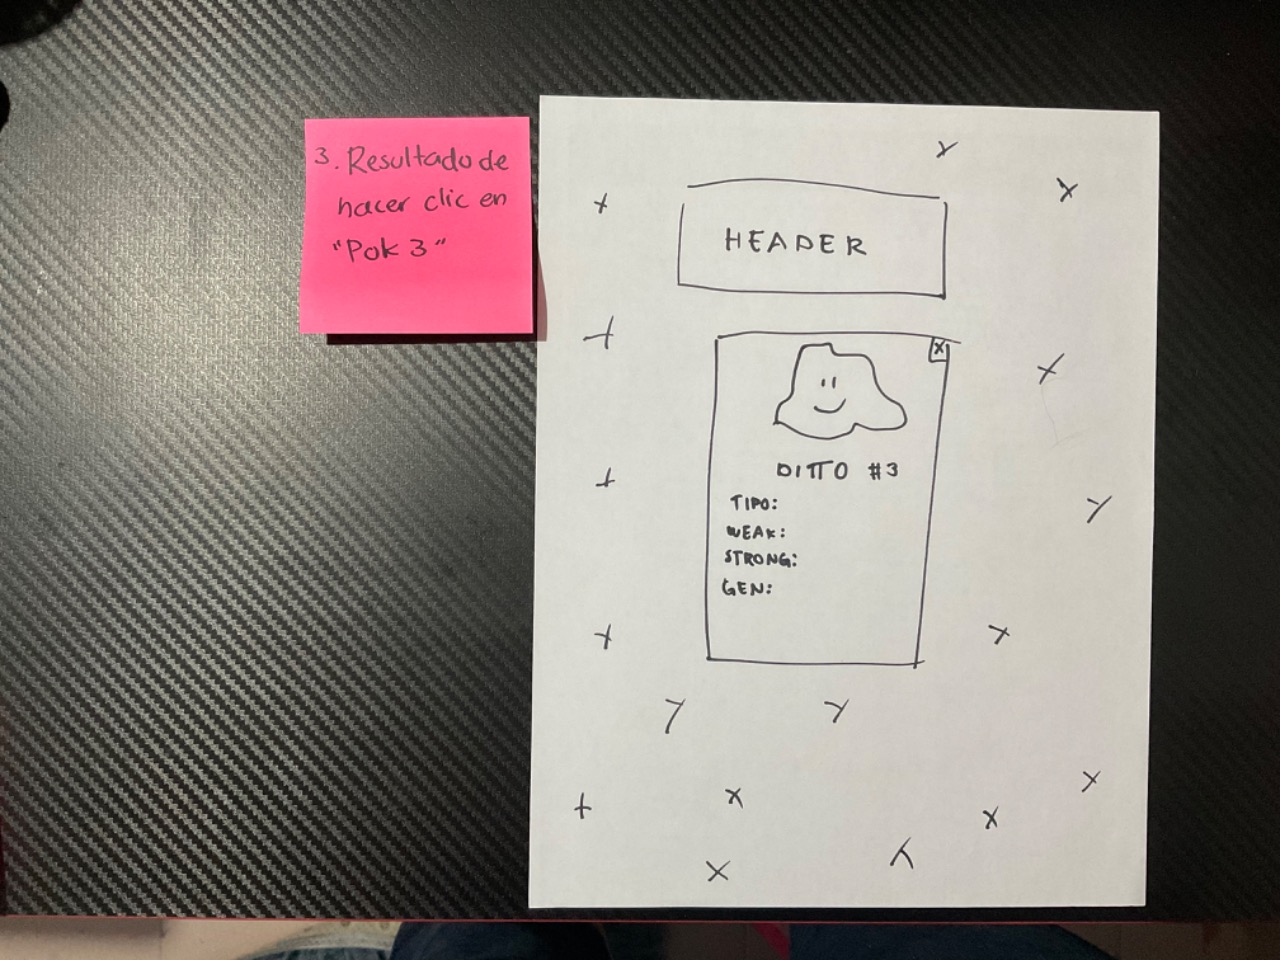 3. Resultado de
hacer clic en
"Pok 3"
HEADER
X
DITTO #3
TIPO:
WEAK:
STRONG:
GEN: